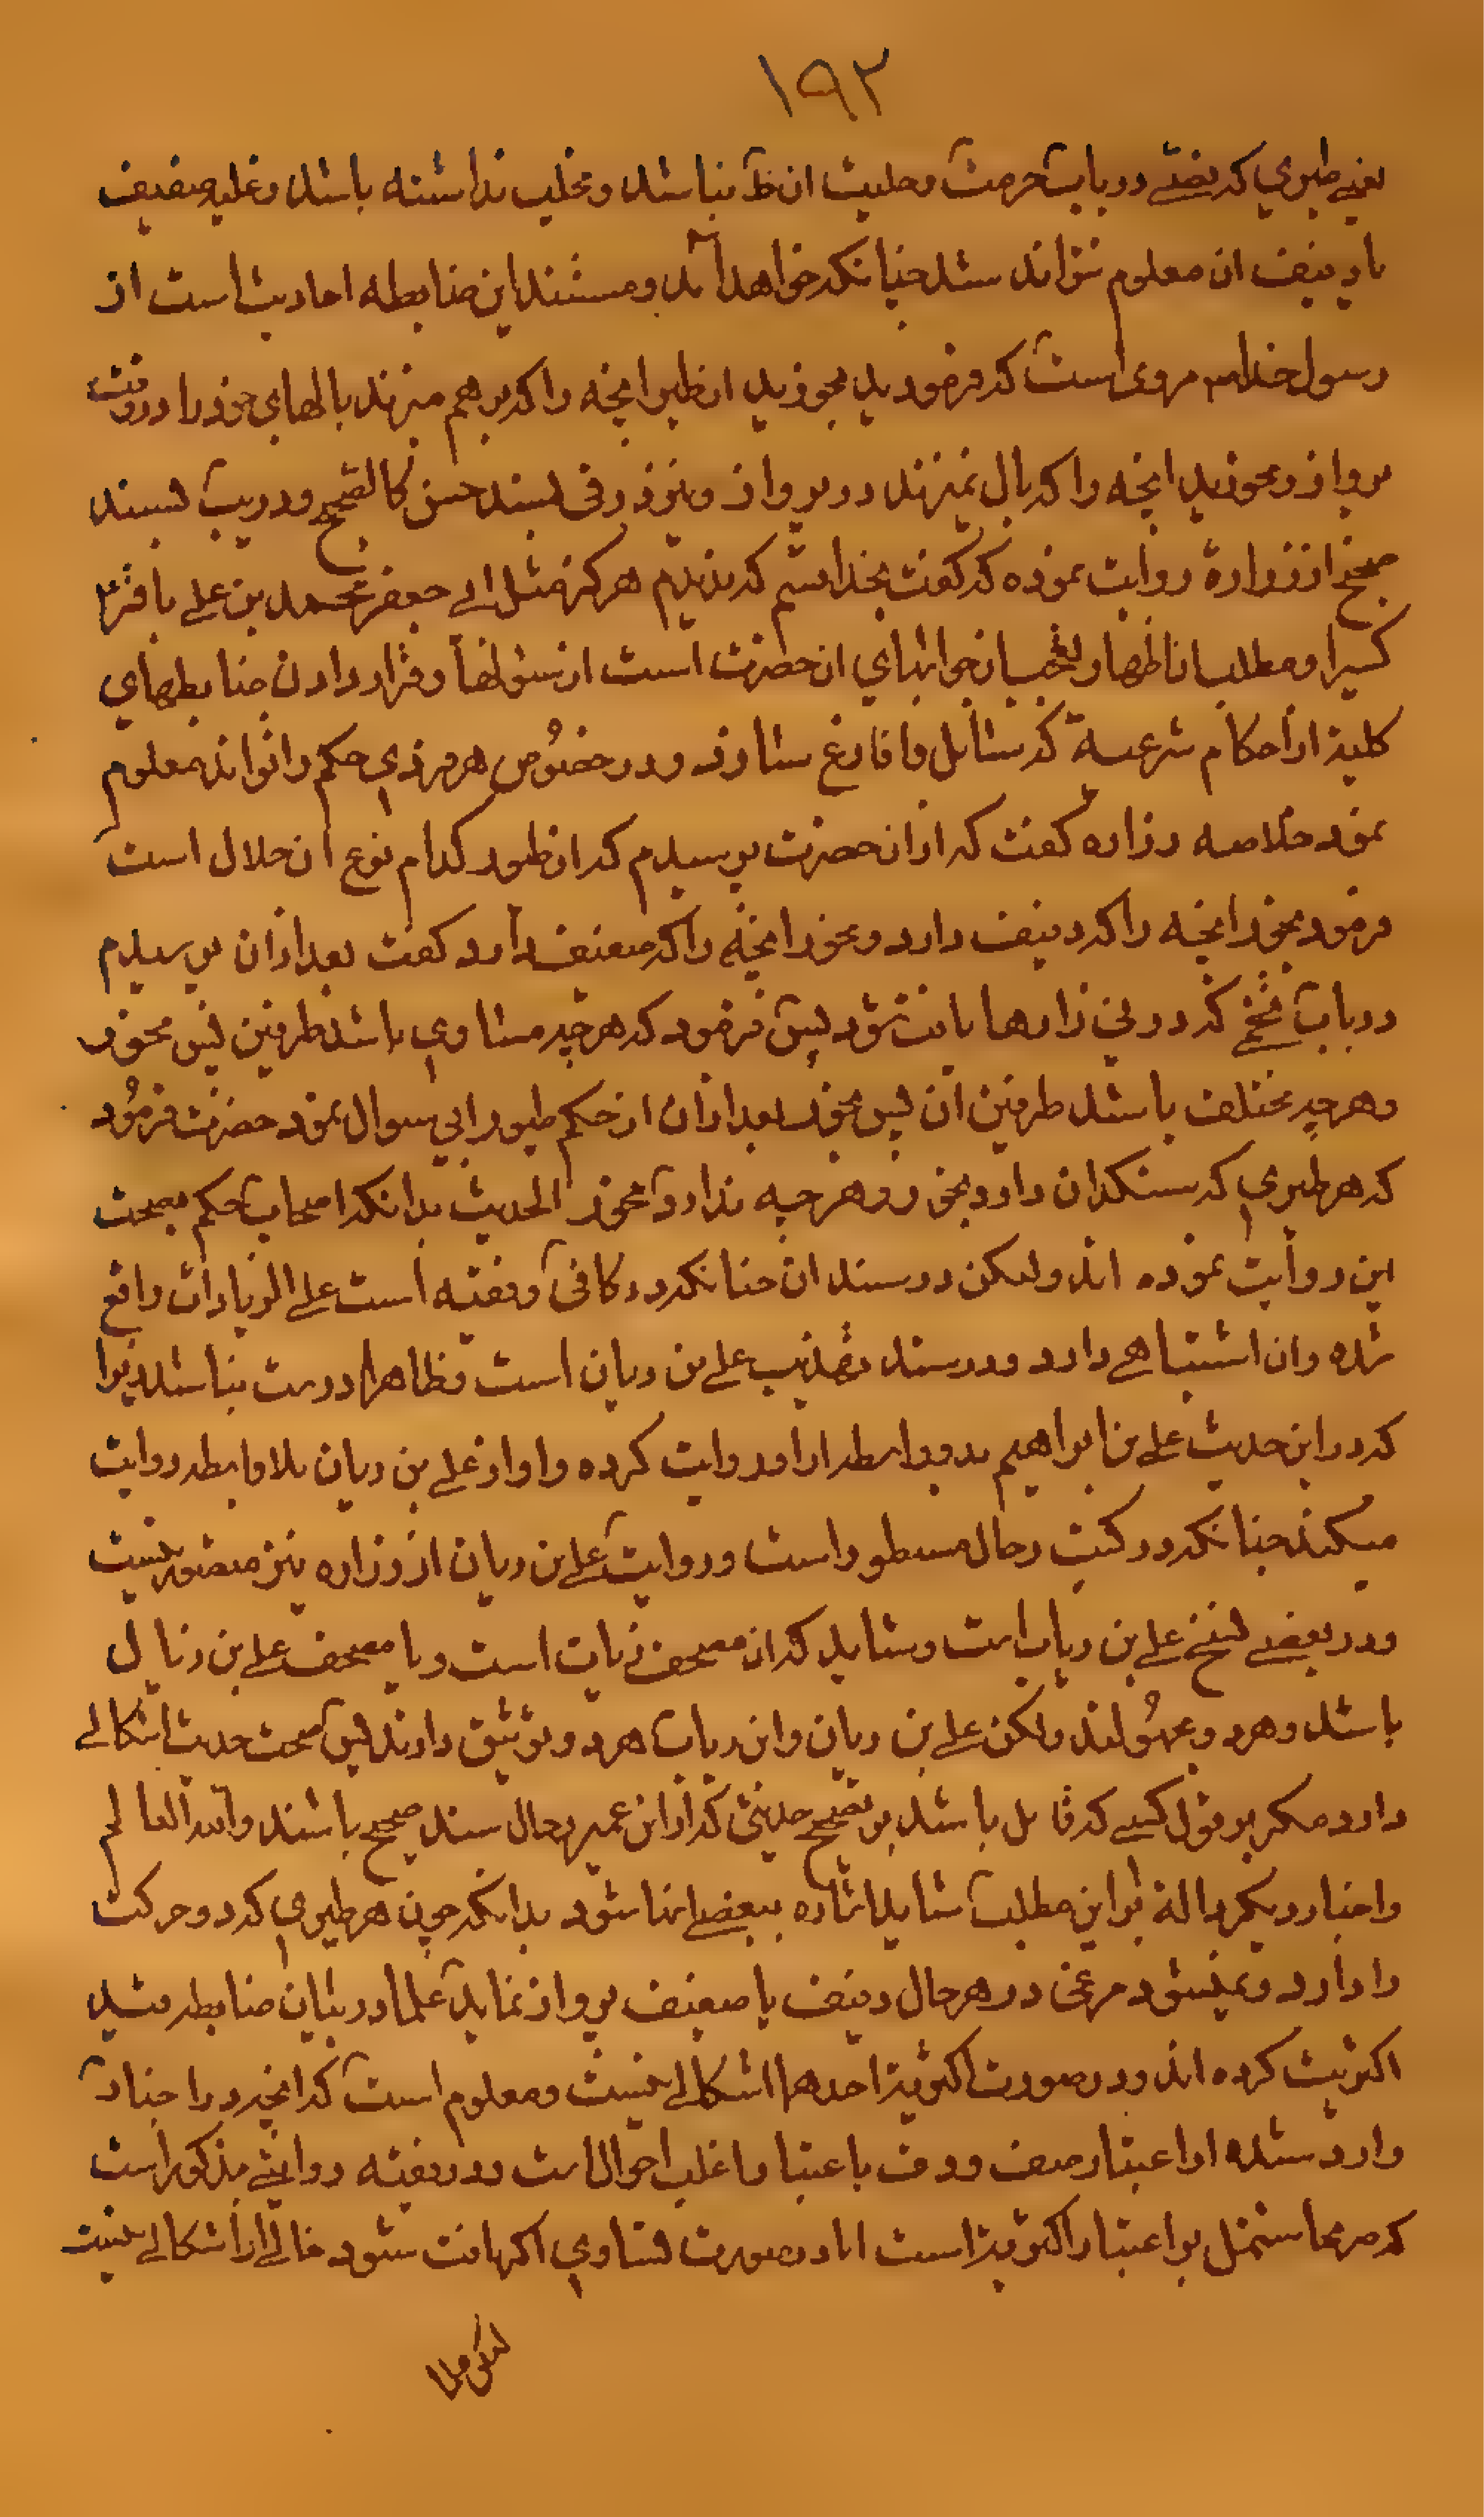 ۱۹۲
یعنے طیری که نصّے در باب حرمت و حلیت ان خا نباشد و مخلب نداشته باشد و غلبه صفیف
یا دفیف ان معلوم نتواند شد چنانکه خواهد آمد و مستند این ضابطه احادیث است از
رسول خدا مروی است که فرمودید بخورید از طیر انچه را که بر هم میزند بالهای خود را در وقت
پرواز و مخورید انچه را که بال نمیزند در پرواز و نیز در فی بسند حسن کالصحیح و در یب بسند
صحیح از زراره روایت نموده که گفت بخدا قسم که ندیدم هرگز مثل ابے جعفر محمد بن علے باقر
کسیرا و مطلب اظهار تعجب از جوابهای ان حضرت است از سئوالها و قرار دادن ضابطهای
کلیة از احکام شرعیة که سائل را فارغ سازد و در خصوص هر فردی حکم را تواند معلوم
نمود خلاصه زراره گفت که از ان حضرت پرسیدم که از طیور کدام نوع ان حلال است
فرمود بخور انچه را که دفیف دارد و مخور انچه را که صفیف دارد گفت بعد از ان پرسیدم
در باب تخم که در نی زارها یافت شود پس فرمود که هر چه مساوی باشد طرفین پس مخور
و هر چه مختلف باشد طرفین ان پس بخور بعد از ان از حکم طیور ابی سوال نمود حضرت فرمود
که هر طیری که سنکدان دارد بخور و هر چه ندارد مخور الحدیث بدانکه اصحاب حکم بصحت
این روایت نموده اند ولیکن در سند ان چنانکه در کافی و فقیه است علے الزیادات واقع
شده و ان اشتباهے دارد و در سند تهذیب علے بن ریان است و ظاهرا درست نباشد زیرا
که در این حدیث علے بن ابراهیم بدو واسطه از او روایت کرده و او از علے بن ریان بلا واسطه روایت
میکند چنانکه در کتب رجال مسطور است و روایت علے بن ریان از زراره نیز متصور نیست
و در بعضے نسخ علے بن ریاب است و شاید که ان مصحف زیات است و یا مصحف علے بن زیال
باشد و هر دو مجهولند ولکن علے بن ریان و ابن ریاب هر دو توثیق دارند پس صحت حدیث اشکالے
دارد مکر بر قول کسے که قائل باشد بر تصحیح حدیثی که از ابن عمیر رجال سند صحیح باشند والله العالم
و اخبار دیکر دالة بر این مطلب شاید اشاره ببعضے انها شود بدانکه چون هر طیری که دو حرکت
را دارد و نمیشود مرغی در هر حال دفیف یا صفیف پرواز نماید علما در بیان ضابطه قید
اکثریت کرده اند و در صورت اکثریة احدهما اشکالے نیست و معلوم است که انچه در اخبار
وارد شده از اعتبار صف و دف باعتبار اغلب احوال است و در فقیه روایتے مذکور است
که صریحا مشتمل بر اعتبار اکثریة است اما در صورت تساوی اکر یافت شود خالے از اشکالے نیست